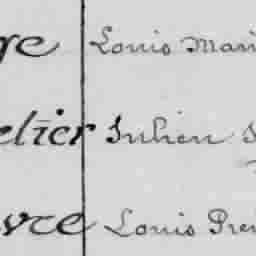 ge Louis Mari
elier Julien
vre Louis Pre